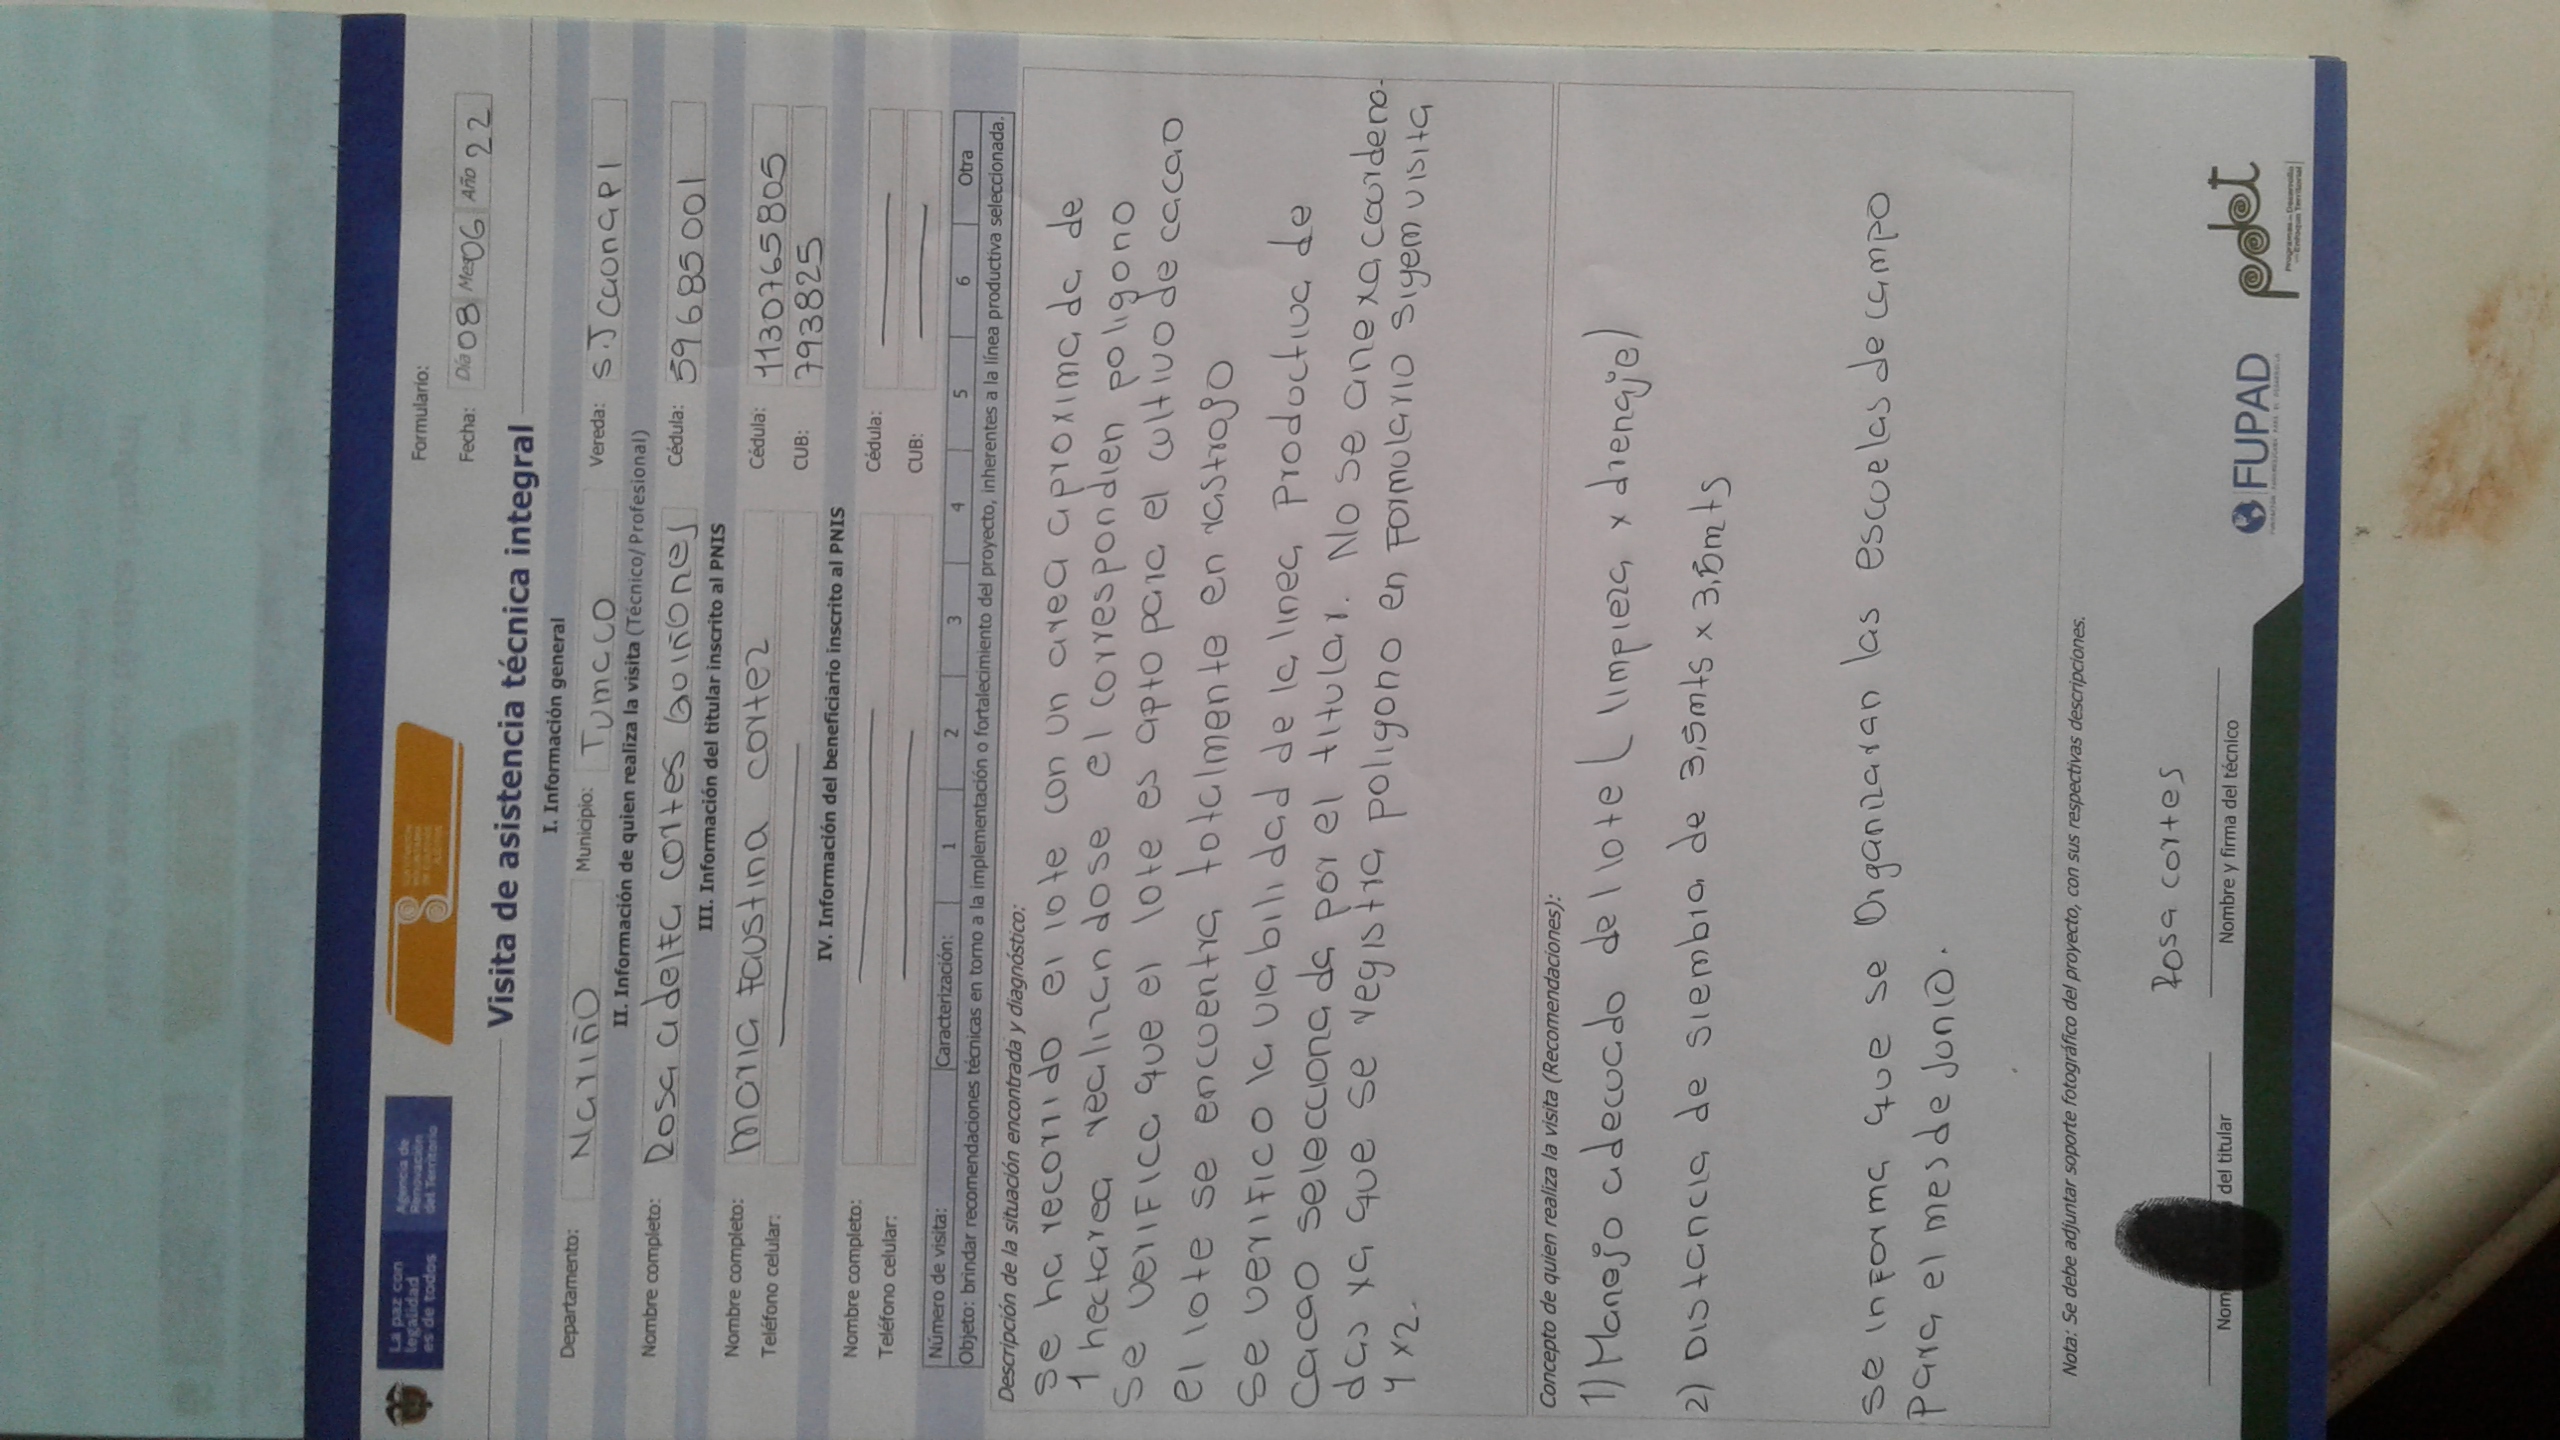 La paz con
legalidad
es de todos
Agencia de
Renovación
del Territorio
Formulario:
Fecha: Día 08 Mes 06 Año 22
Visita de asistencia técnica integral
I. Información general
Departamento: Nariño Municipio: Tumaco Vereda: S.J Caonapi
II. Información de quien realiza la visita (Técnico/Profesional)
Nombre completo: Rosa adelta cortes Quiñones Cédula: 59685001
III. Información del titular inscrito al PNIS
Nombre completo: Maria Faustina cortez Cédula: 1130765805
Teléfono celular: CUB: 793825
IV. Información del beneficiario inscrito al PNIS
Nombre completo: Cédula:
Teléfono celular: CUB:
Número de visita: Caracterización: 1 2 3 4 5 6 Otra
Objeto: brindar recomendaciones técnicas en torno a la implementación o fortalecimiento del proyecto, inherentes a la línea productiva seleccionada.
Descripción de la situación encontrada y diagnóstico:
Se ha recorrido el lote con un area aproximada de
1 hectarea realizandose el correspondien poligono
Se verifica que el lote es apto para el cultivo de cacao
el lote se encuentra totalmente en rastrojo
Se verifico la viabilidad de la linea productiva de
Cacao seleccionada por el titular. No se anexa coordena-
das xa que se registra poligono en Formulario sigem visita
1 x2.
Concepto de quien realiza la visita (Recomendaciones):
1) Manejo adecuado del lote (limpieza x drenaje)
2) Distancia de siembra de 3,5mts x 3,5mts
se informa que se Organizaran las escuelas de campo
Para el mes de Junio.
Nota: Se debe adjuntar soporte fotográfico del proyecto, con sus respectivas descripciones.
Rosa cortes
del titular
Nombre y firma del técnico
FUPAD
pdet
Programas de Desarrollo
con Enfoque Territorial